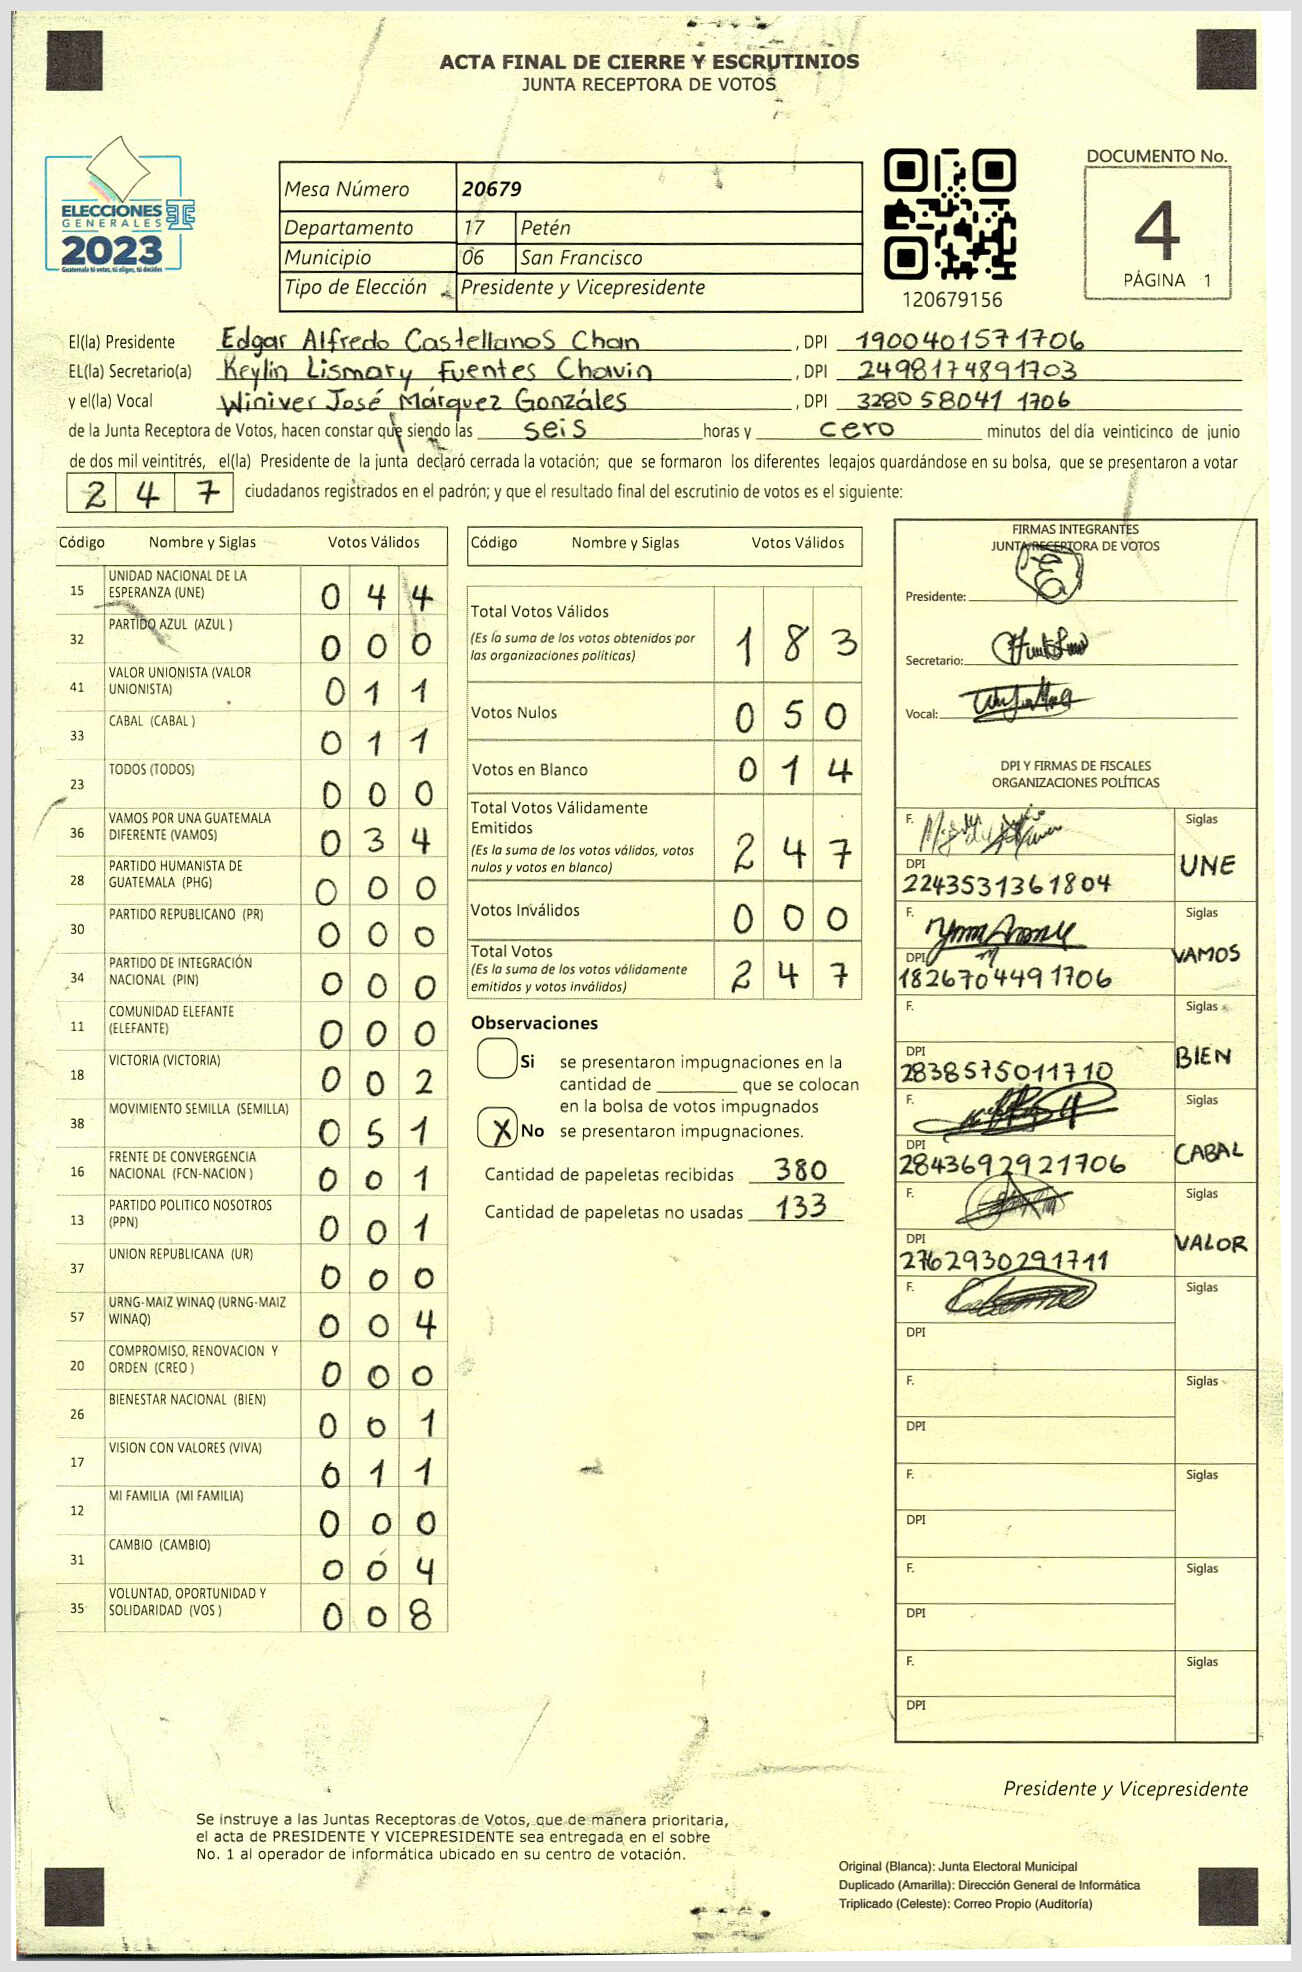 ACTA FINAL DE CIERRE Y ESCRUTINIOS
JUNTA RECEPTORA DE VOTOS
ELECCIONES
GENERALES
2023
Guatemala tú votas, tú eliges, tú decides
Mesa Número 20679
Departamento 17 Petén
Municipio 06 San Francisco
Tipo de Elección Presidente y Vicepresidente
120679156
DOCUMENTO No.
4
PÁGINA 1
El(la) Presidente Edgar Alfredo Castellanos Chan , DPI 1900401571706
EL(la) Secretario(a) Keylin Lismary Fuentes Chavin , DPI 2498174891703
y el(la) Vocal Winiver José Márquez Gonzáles , DPI 3280 58041 1706
de la Junta Receptora de Votos, hacen constar que siendo las seis horas y cero minutos del día veinticinco de junio
de dos mil veintitrés, el(la) Presidente de la junta declaró cerrada la votación; que se formaron los diferentes legajos guardándose en su bolsa, que se presentaron a votar
2 4 7 ciudadanos registrados en el padrón; y que el resultado final del escrutinio de votos es el siguiente:
Código Nombre y Siglas Votos Válidos
15 UNIDAD NACIONAL DE LA
ESPERANZA (UNE) 0 4 4
32 PARTIDO AZUL (AZUL ) 0 0 0
41 VALOR UNIONISTA (VALOR
UNIONISTA) 0 1 1
33 CABAL (CABAL ) 0 1 1
23 TODOS (TODOS) 0 0 0
36 VAMOS POR UNA GUATEMALA
DIFERENTE (VAMOS) 0 3 4
28 PARTIDO HUMANISTA DE
GUATEMALA (PHG) 0 0 0
30 PARTIDO REPUBLICANO (PR) 0 0 0
34 PARTIDO DE INTEGRACIÓN
NACIONAL (PIN) 0 0 0
11 COMUNIDAD ELEFANTE
(ELEFANTE) 0 0 0
18 VICTORIA (VICTORIA) 0 0 2
38 MOVIMIENTO SEMILLA (SEMILLA) 0 5 1
16 FRENTE DE CONVERGENCIA
NACIONAL (FCN-NACION ) 0 0 1
13 PARTIDO POLITICO NOSOTROS
(PPN) 0 0 1
37 UNION REPUBLICANA (UR) 0 0 0
57 URNG-MAIZ WINAQ (URNG-MAIZ
WINAQ) 0 0 4
20 COMPROMISO, RENOVACION Y
ORDEN (CREO ) 0 0 0
26 BIENESTAR NACIONAL (BIEN) 0 0 1
17 VISION CON VALORES (VIVA) 0 1 1
12 MI FAMILIA (MI FAMILIA) 0 0 0
31 CAMBIO (CAMBIO) 0 0 4
35 VOLUNTAD, OPORTUNIDAD Y
SOLIDARIDAD (VOS ) 0 0 8
Código Nombre y Siglas Votos Válidos
Total Votos Válidos
(Es la suma de los votos obtenidos por
las organizaciones políticas) 1 8 3
Votos Nulos 0 5 0
Votos en Blanco 0 1 4
Total Votos Válidamente
Emitidos
(Es la suma de los votos válidos, votos
nulos y votos en blanco) 2 4 7
Votos Inválidos 0 0 0
Total Votos
(Es la suma de los votos válidamente
emitidos y votos inválidos) 2 4 7
Observaciones
Si se presentaron impugnaciones en la
cantidad de ________ que se colocan
en la bolsa de votos impugnados
X No se presentaron impugnaciones.
Cantidad de papeletas recibidas 380
Cantidad de papeletas no usadas 133
FIRMAS INTEGRANTES
JUNTA RECEPTORA DE VOTOS
Presidente:
Secretario:
Vocal:
DPI Y FIRMAS DE FISCALES
ORGANIZACIONES POLÍTICAS
F. Siglas
UNE
DPI
2243531361804
F. Siglas
VAMOS
DPI
1826704491706
F. Siglas
BIEN
DPI
2838575011710
F. Siglas
CABAL
DPI
2843692921706
F. Siglas
VALOR
DPI
2762930291711
F. Siglas
DPI
F. Siglas
DPI
F. Siglas
DPI
F. Siglas
DPI
F. Siglas
DPI
Presidente y Vicepresidente
Se instruye a las Juntas Receptoras de Votos, que de manera prioritaria,
el acta de PRESIDENTE Y VICEPRESIDENTE sea entregada en el sobre
No. 1 al operador de informática ubicado en su centro de votación.
Original (Blanca): Junta Electoral Municipal
Duplicado (Amarilla): Dirección General de Informática
Triplicado (Celeste): Correo Propio (Auditoría)